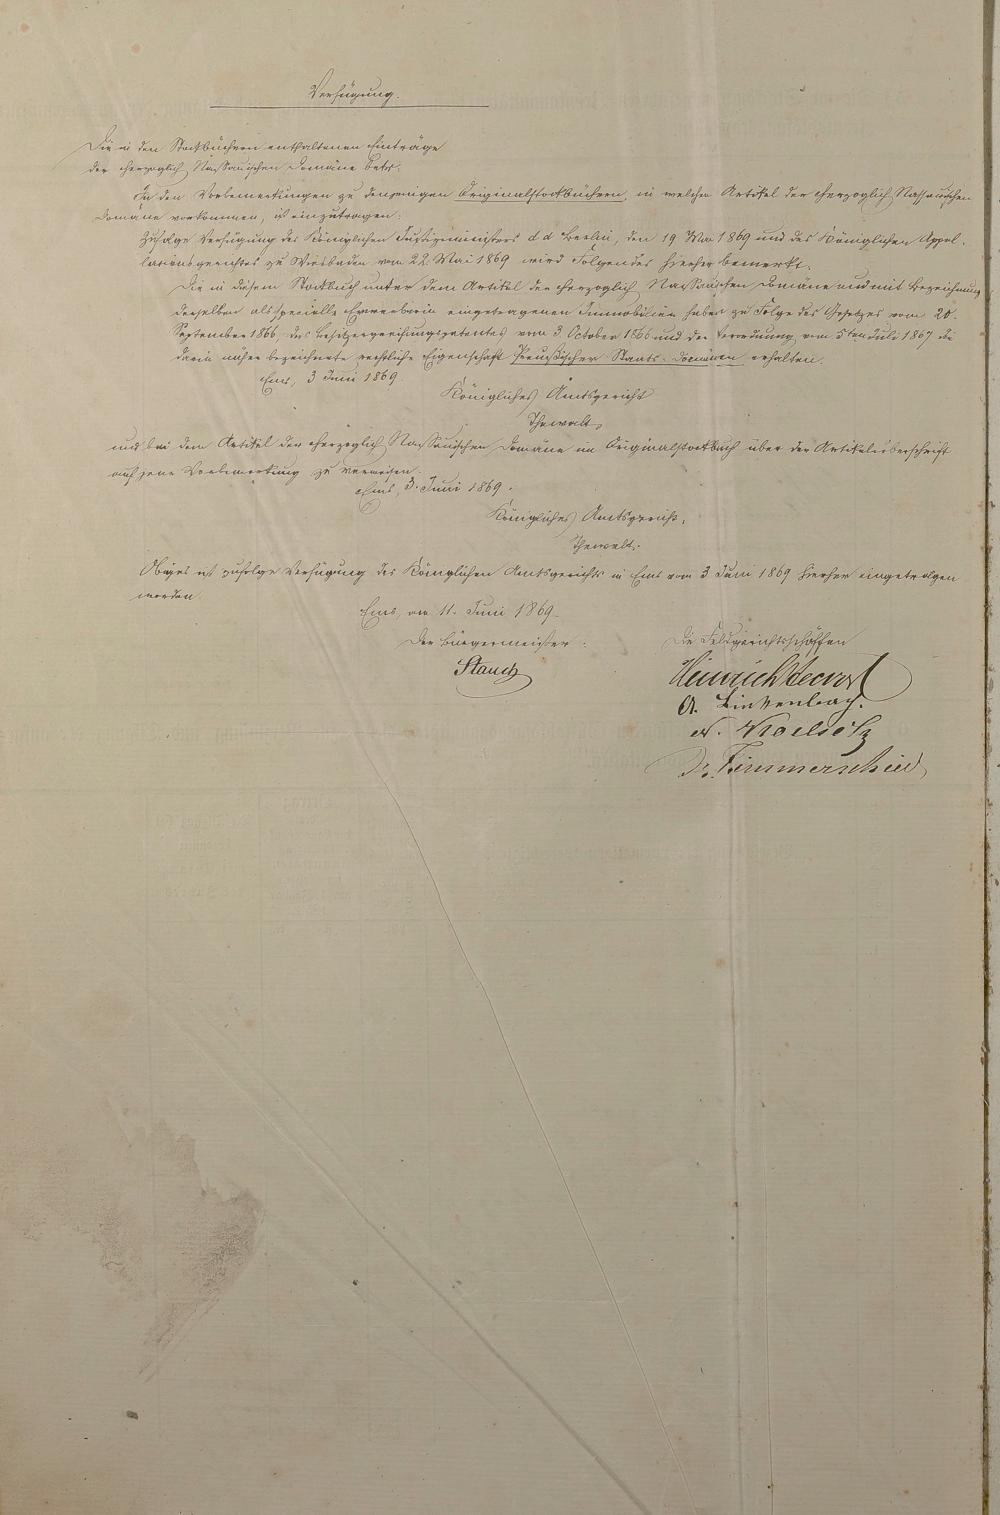 Verfügung.
Die in den Stockbüchern enthaltenen Einträge
der Herzoglich Nassauischen Domäne betr.
In den Vorbemerkungen zu denjenigen Originalstockbüchern, in welchen Artikel der Herzoglich Nassauischen
Domäne vorkommen, ist einzutragen:
Zufolge Verfügung des Königlichen Justizministers d d Berlin, den 19 Mai 1869 und des Königlichen Appel-
lationsgerichtes zu Wiesbaden vom 22. Mai 1869 wird Folgendes hierher bemerkt.
Die in diesem Stockbuch unter dem Artikel der Herzoglich Nassauischen Domäne und mit Bezeichnung
derselben als specielle Erwerberin eingetragenen Immobilien haben zu Folge des Gesetzes vom 20.
September 1866, des Besitzergreifungspatentes vom 3 October 1866 und der Verordnung vom 5ten Juli 1867 die
darin näher bezeichnete rechtliche Eigenschaft Preußischer Staats-Domänen erhalten.
Ems, 3 Juni 1869.
Königliches Amtsgericht
Thewalt.
und bei dem Artikel der Herzoglich Nassauischen Domäne im Originalstockbuch über der Artikelüberschrift
auf jene Vorbemerkung zu verweisen.
Ems, 3. Juni 1869.
Königliches Amtsgericht.
Thewalt.
Obiges ist zufolge Verfügung des Königlichen Amtsgerichts in Ems vom 3 Juni 1869 hierher eingetragen
worden.
Ems, am 11. Juni 1869.
Der Bürgermeister:
Die Feldgerichtsschöffen
Heinrich
A. Linkenbach.